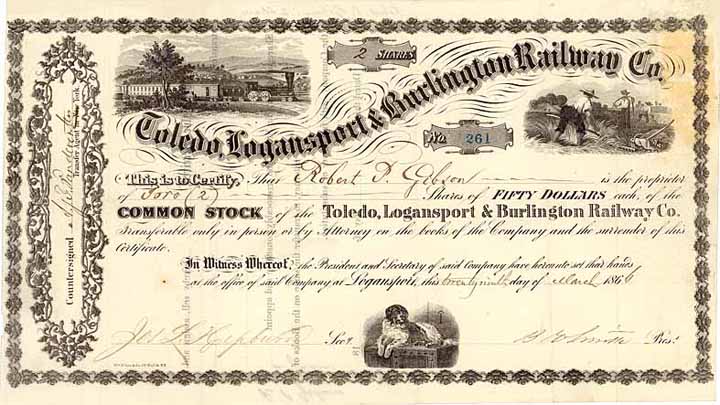 2 SHARES
Toledo, Logansport & Burlington Railway Co.
No. 261
This is to Certify, That Robert D. Gibson is the proprietor
of Two (2) Shares of FIFTY DOLLARS each, of the
COMMON STOCK of the Toledo, Logansport & Burlington Railway Co.
Transferable only in person or by Attorney on the books of the Company and the surrender of this
Certificate.
In Witness Whereof, the President and Secretary of said Company have hereunto set their hands
at the office of said Company at Logansport, this twenty ninth day of March 186
Secy.
Pres't
Countersigned
Transfer Agent New York